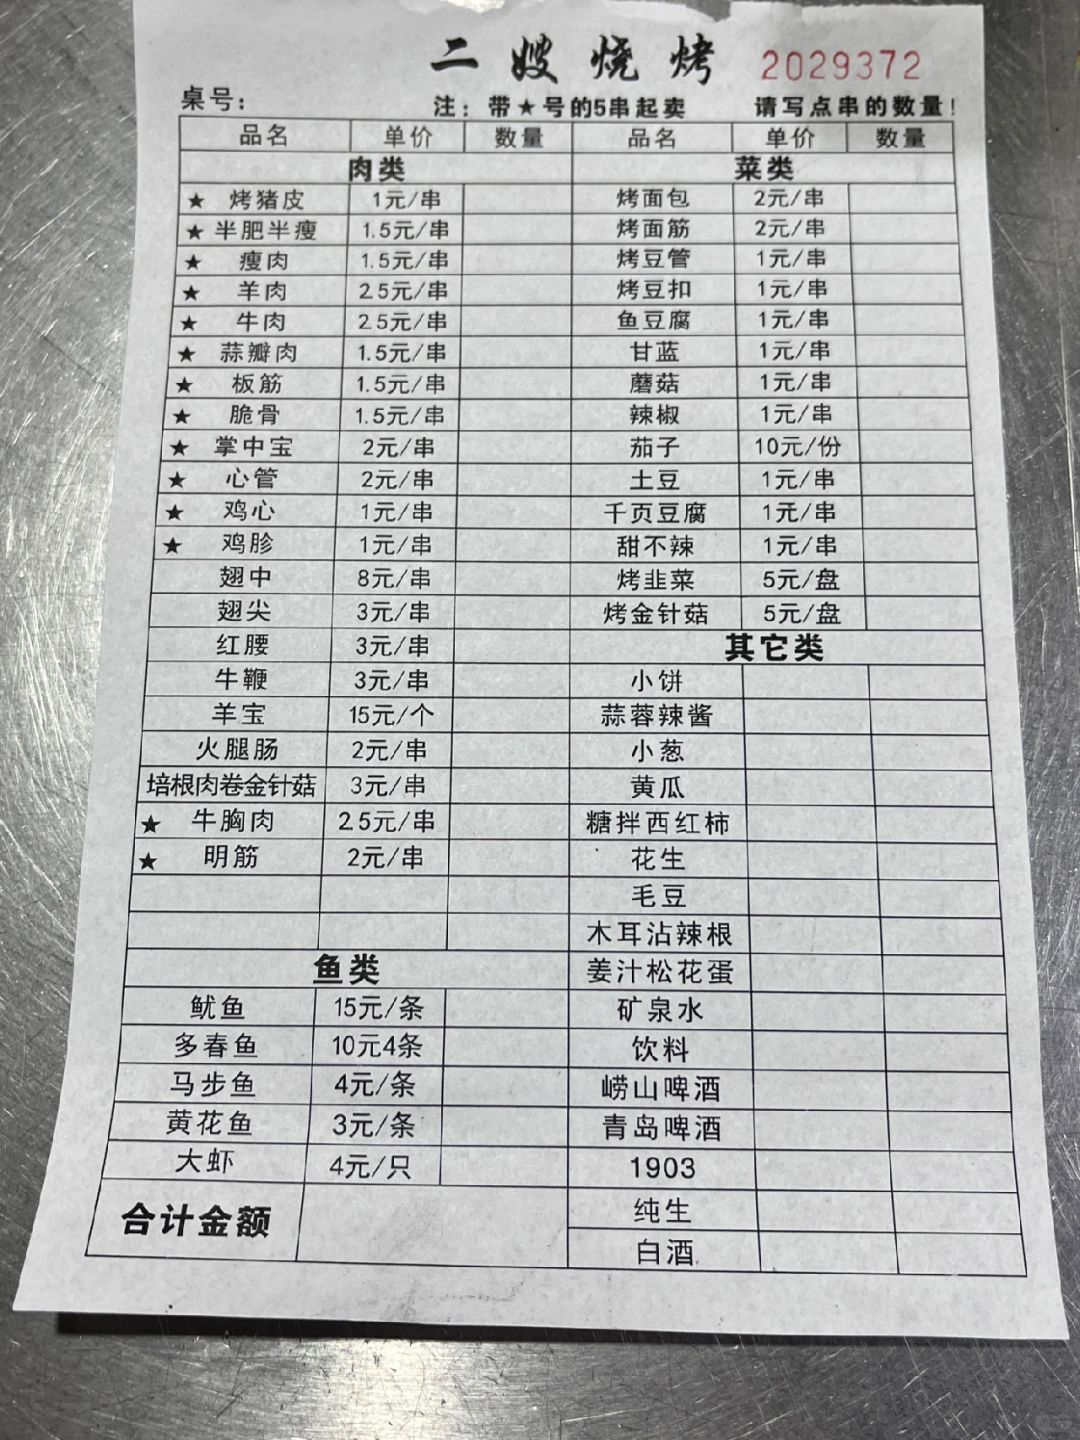 二嫂烧烤 2029372
桌号： 注：带★号的5串起卖 请写点串的数量！
品名 单价 数量 品名 单价 数量
肉类 菜类
★ 烤猪皮 1元/串 烤面包 2元/串
★ 半肥半瘦 1.5元/串 烤面筋 2元/串
★ 瘦肉 1.5元/串 烤豆管 1元/串
★ 羊肉 2.5元/串 烤豆扣 1元/串
★ 牛肉 2.5元/串 鱼豆腐 1元/串
★ 蒜瓣肉 1.5元/串 甘蓝 1元/串
★ 板筋 1.5元/串 蘑菇 1元/串
★ 脆骨 1.5元/串 辣椒 1元/串
★ 掌中宝 2元/串 茄子 10元/份
★ 心管 2元/串 土豆 1元/串
★ 鸡心 1元/串 千页豆腐 1元/串
★ 鸡胗 1元/串 甜不辣 1元/串
翅中 8元/串 烤韭菜 5元/盘
翅尖 3元/串 烤金针菇 5元/盘
红腰 3元/串 其它类
牛鞭 3元/串 小饼
羊宝 15元/个 蒜蓉辣酱
火腿肠 2元/串 小葱
培根肉卷金针菇 3元/串 黄瓜
★ 牛胸肉 2.5元/串 糖拌西红柿
★ 明筋 2元/串 花生
毛豆
木耳沾辣根
鱼类 姜汁松花蛋
鱿鱼 15元/条 矿泉水
多春鱼 10元4条 饮料
马步鱼 4元/条 崂山啤酒
黄花鱼 3元/条 青岛啤酒
大虾 4元/只 1903
合计金额 纯生
白酒